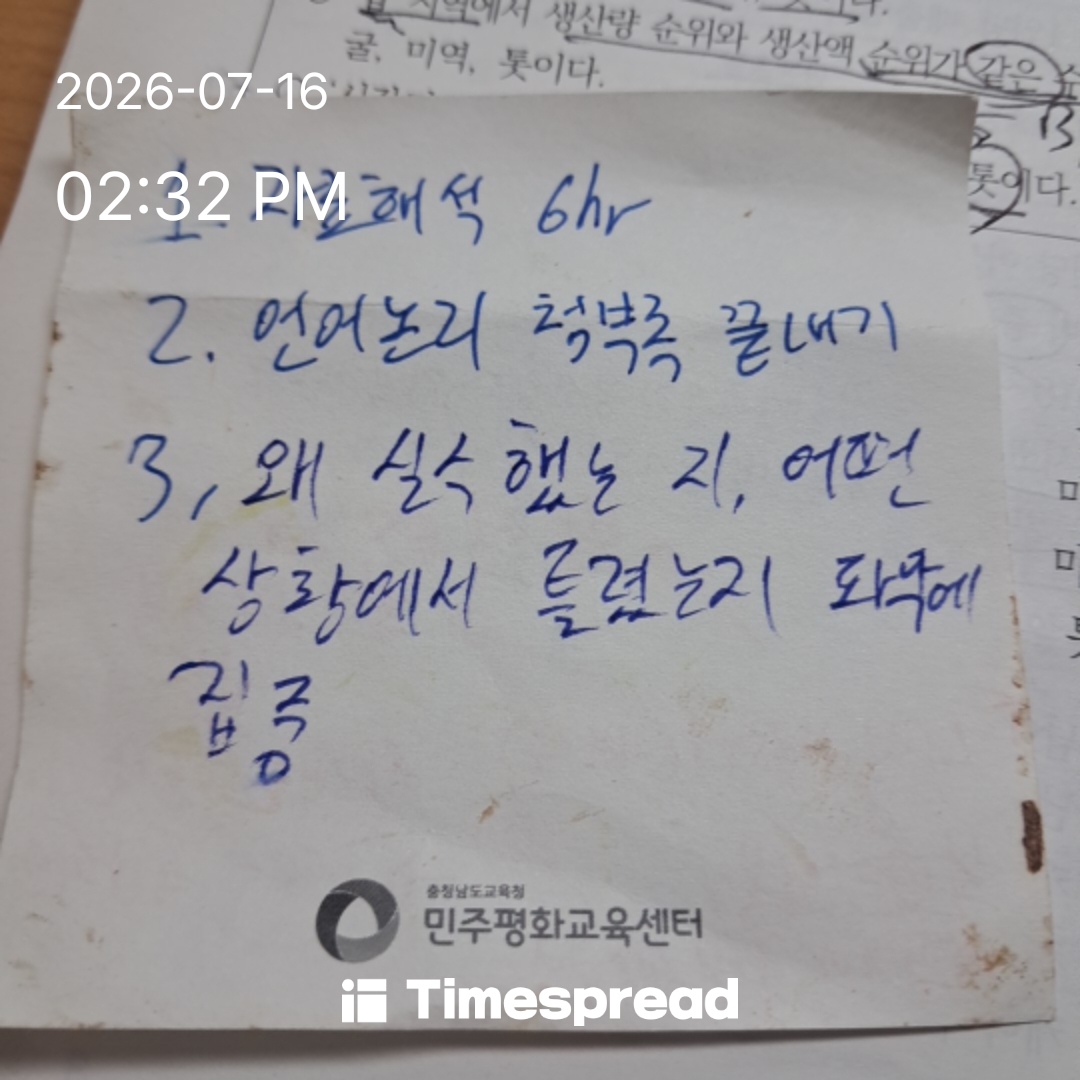 지역에서 생산량 순위와 생산액 순위가 같은
굴, 미역, 톳이다.
2026-07-16
02:32 PM
1. 자료해석 6hr
톳이다.
2. 언어논리 첨부록 끝내기
3, 왜 실수했는 지, 어떤
상황에서 틀렸는지 파악에
집중
충청남도교육청
민주평화교육센터
Timespread